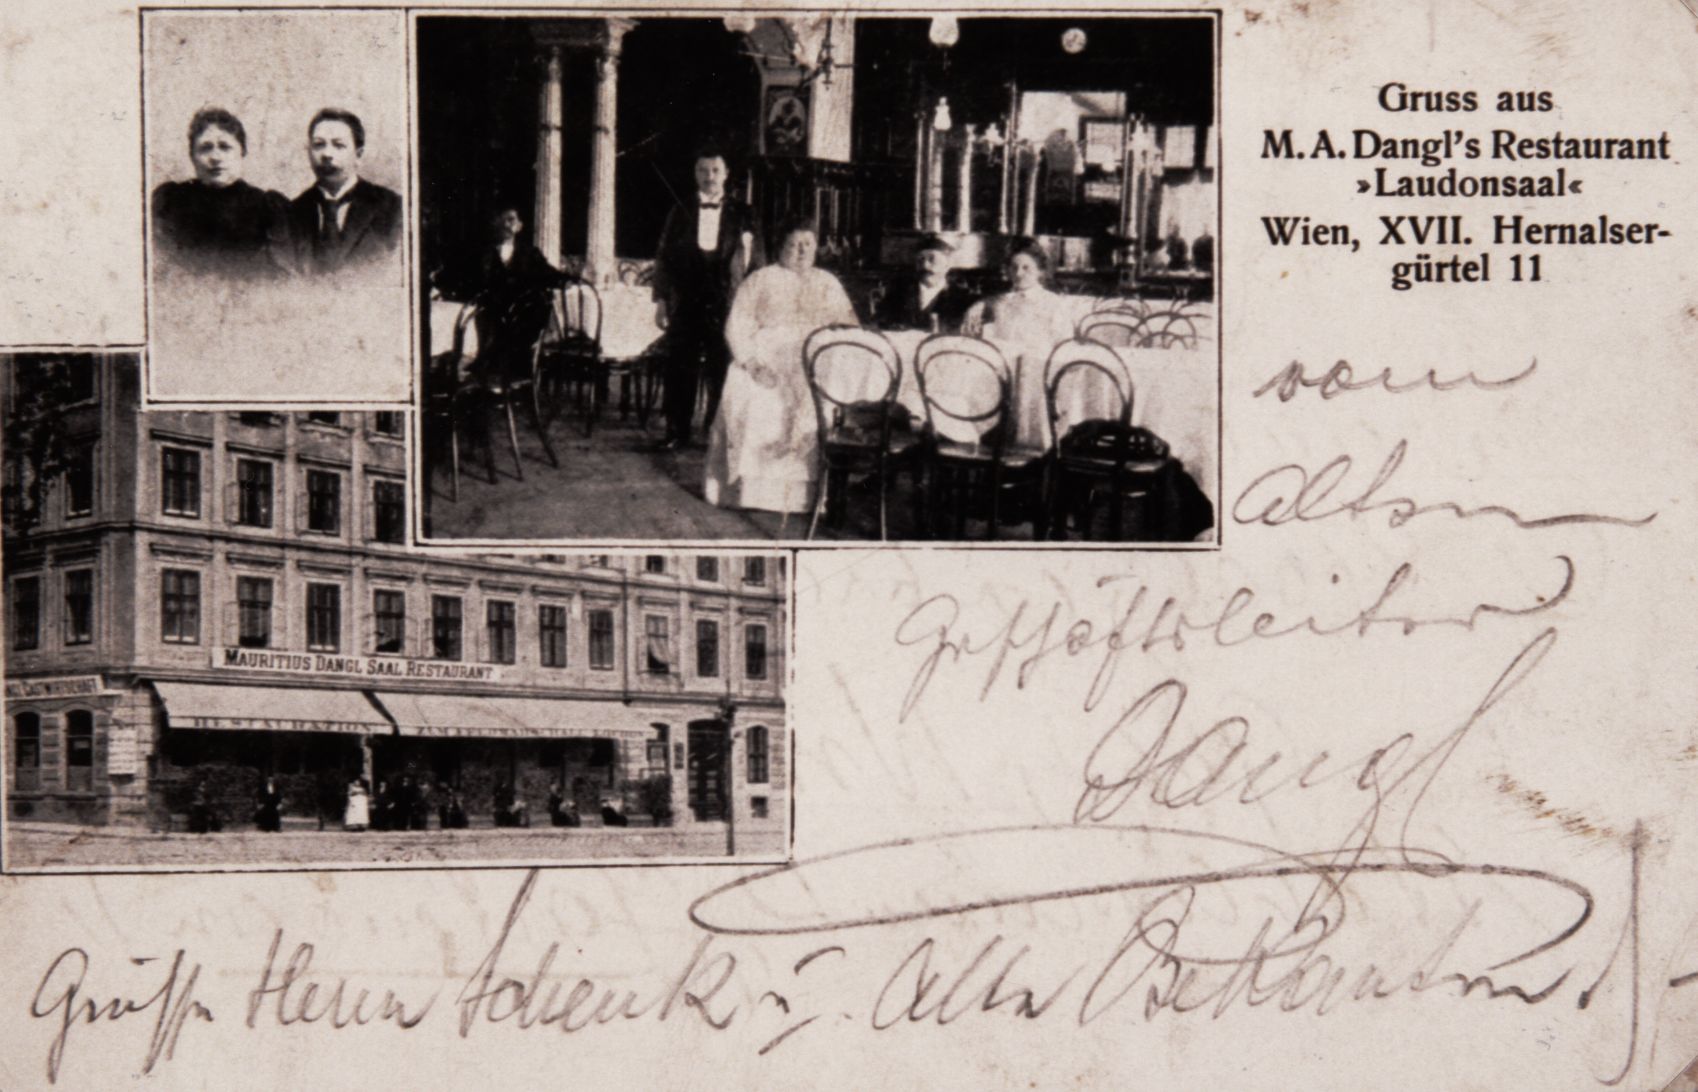 Gruss aus
M. A. Dangl's Restaurant
»Laudonsaal«
Wien, XVII. Hernalser-
gürtel 11
vom
alten
Geschäftsleiter
Dangl
MAURITIUS DANGL SAAL RESTAURANT
GASTWIRTSCHAFT
RESTAURATION
Grüsse Herrn Schenk u. alle Bekannten